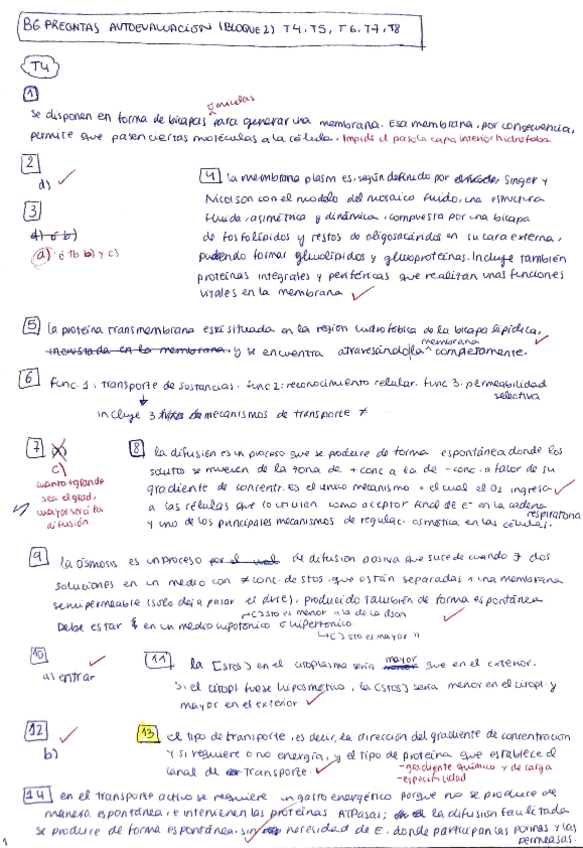 B6 PREGNTAS AUTOEVALUACIÓN (BLOQUE 2) T4, T5, T6, T7, T8
T4
1
ó micelas
se disponen en forma de bicapas para generar una membrana. Esa membrana, por consecuencia,
permite que pasen ciertas moléculas a la célula. Impide el paso la capa interior hidrófoba
2
d)
3
d) ó b)
a) ó tb b) y c)
4 la membrana plasm es, según definido por Singer y
Nicolson con el modelo del mosaico fluido, una estructura
fluida, asimétrica y dinámica, compuesta por una bicapa
de fosfolípidos y restos de oligosacáridos en su cara externa,
pudiendo formar glucolípidos y glucoproteínas. Incluye también
proteínas integrales y periféricas que realizan unas funciones
vitales en la membrana
5 la proteína transmembrana está situada en la región hidrofóbica de la bicapa lipídica,
incrustada en la membrana. y se encuentra atravesándola membrana completamente.
6 Func. 1: transporte de sustancias. func 2: reconocimiento celular. func 3: permeabilidad
selectiva
incluye 3 mecanismos de transporte ≠
7
c)
cuanto + grande
sea el grad,
mayor será la
difusión
8 la difusión es un proceso que se produce de forma espontánea donde los
soluto se mueven de la zona de + conc a la de - conc. a favor de su
gradiente de concentr. Es el único mecanismo x el cual el O2 ingresa
a las células que lo utilizan como aceptor final de e- en la cadena
respiratoria
y uno de los principales mecanismos de regulac. osmótica en las células.
9 la ósmosis es un proceso por el cual de difusión pasiva que sucede cuando ∃ dos
soluciones en un medio con ≠ conc. de stos. que están separadas x una membrana
semipermeable (solo deja pasar el dvte), producido también de forma espontánea
[ ] sto es menor a la de la dson
Debe estar en un medio hipotónico o hipertónico
[ ] sto es mayor "
10
a) entrar
11 la [stos] en el citoplasma sería mayor que en el exterior.
Si el citopl fuese hiposmótico, la [stos] sería menor en el citopl. y
mayor en el exterior
12
b)
13 el tipo de transporte, es decir, la dirección del gradiente de concentración
y si requiere o no energía, y el tipo de proteína que establece el
canal de transporte.
- gradiente químico y de carga
- especificidad
14 en el transporte activo se requiere un gasto energético porque no se produce de
manera espontánea. e intervienen las proteínas ATPasas; la difusión facilitada
se produce de forma espontánea, sin necesidad de E, donde participan las porinas y las
permeasas.
1